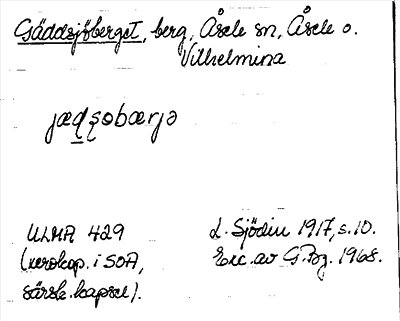 Gäddsjöberget, berg, Åsele sn, Åsele o.
Vilhelmina
jædʂobærjə
ULMA 429
(xerokop. i SOA,
särsk. kapsel).
L. Sjödin 1917, s. 10.
Exc. av G.Bg. 1968.